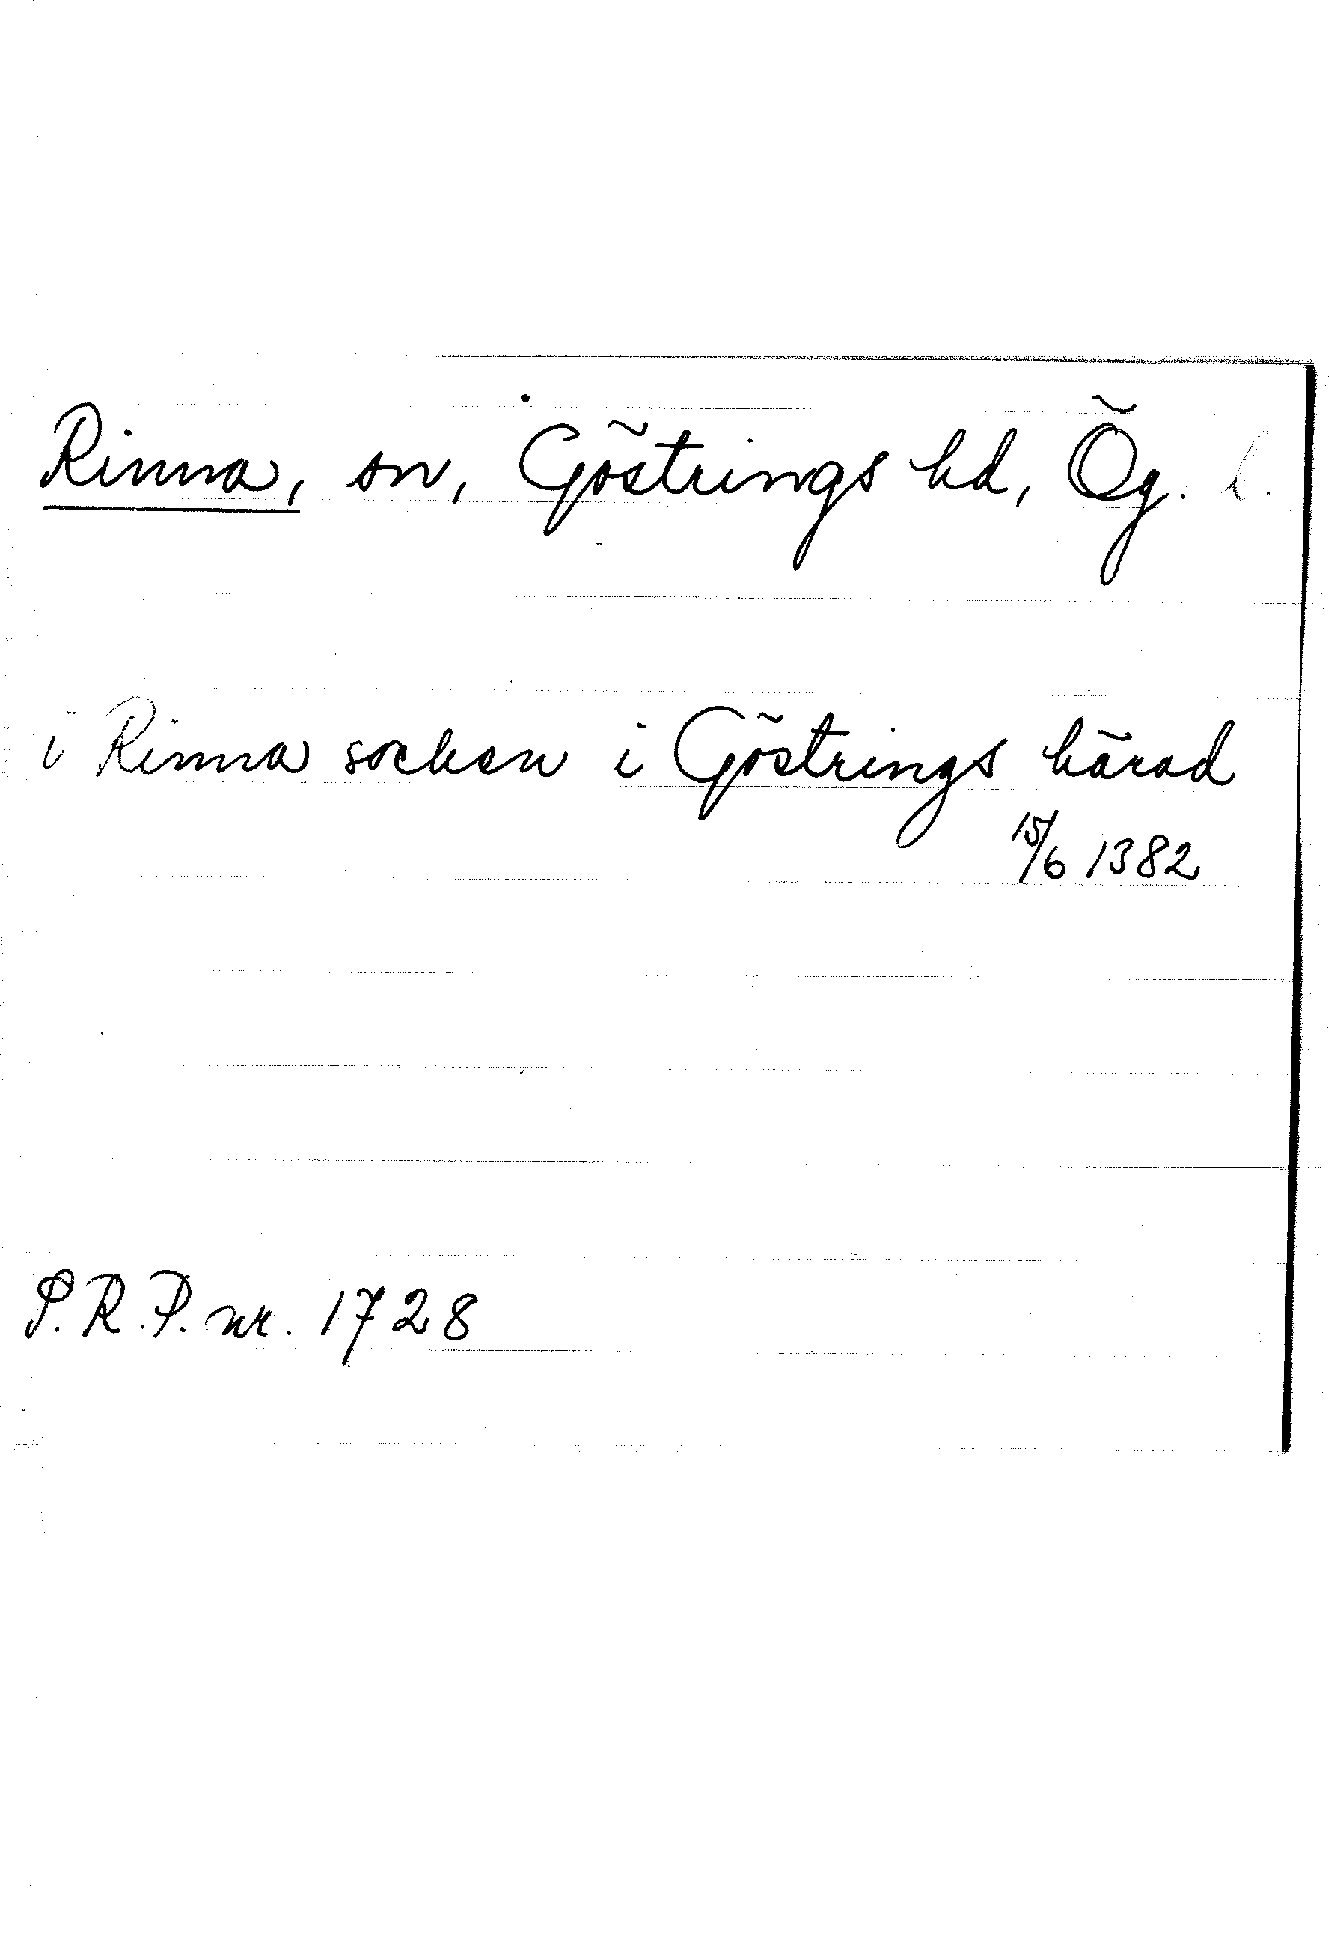 Rinna, sn, Göstrings hd, Ög. l.
i Rinna socken i Göstrings härad
15/6 1382
P.R.P. nr. 1728